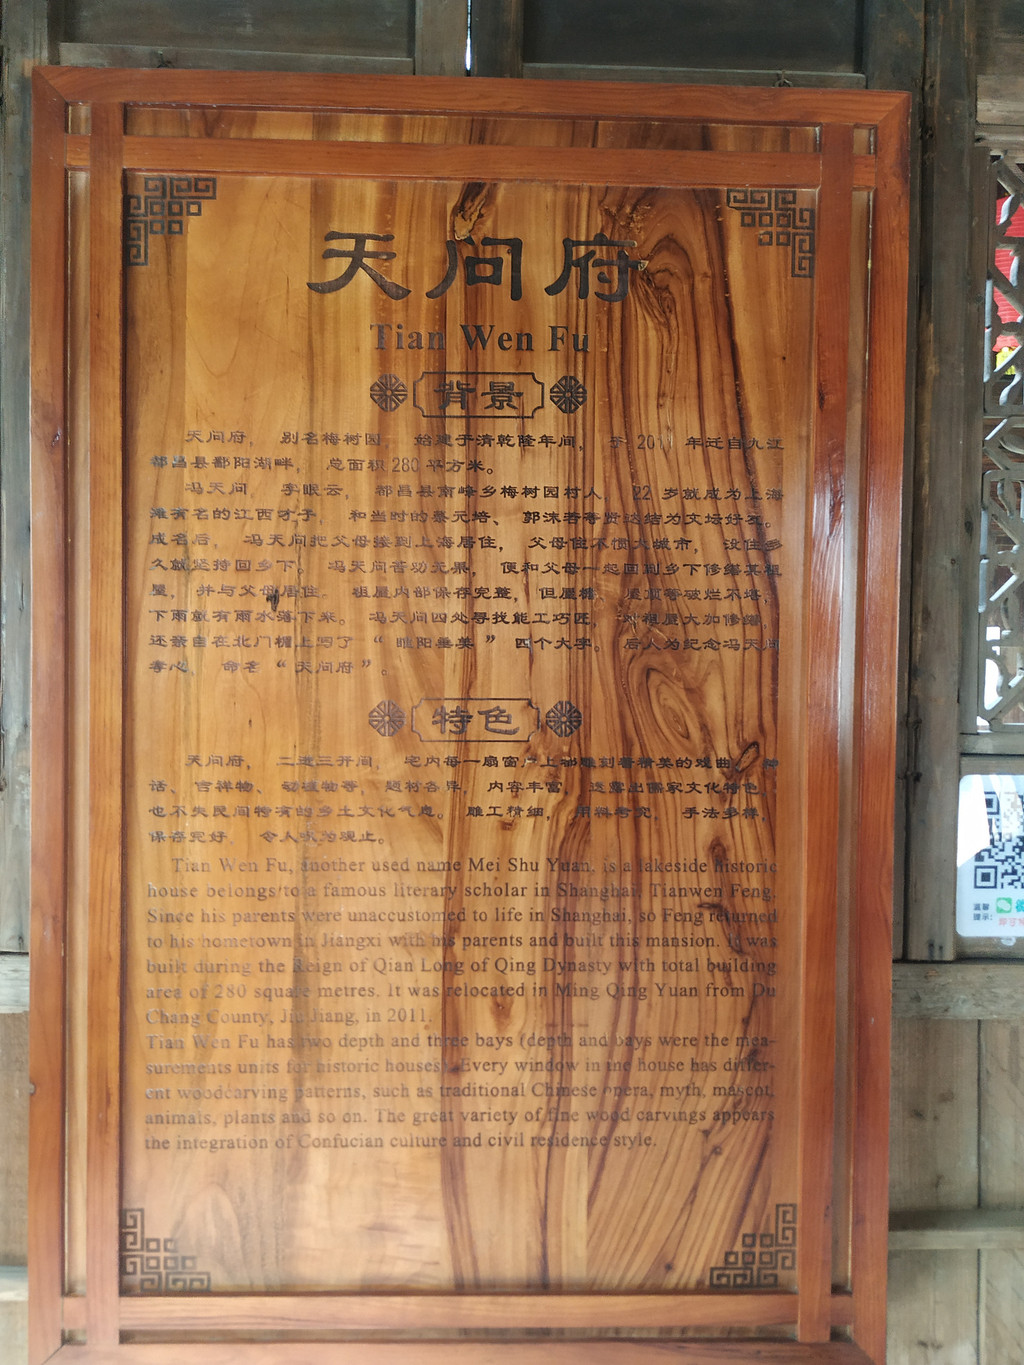 天问府
Tian Wen Fu
背景
天问府， 别名梅树园， 始建于清乾隆年间， 于 2011 年迁自九江
都昌县鄱阳湖畔， 总面积 280 平方米。
冯天问， 字眠云， 都昌县南峰乡梅树园村人， 22 岁就成为上海
滩有名的江西才子， 和当时的蔡元培、 郭沫若等贤达结为文坛好友。
成名后， 冯天问把父母接到上海居住， 父母住不惯大城市， 没住多
久就坚持回乡下。 冯天问苦劝无果， 便和父母一起回到乡下修缮其祖
屋， 并与父母居住。 祖屋内部保存完整， 但屋檐、 屋顶等破烂不堪，
下雨就有雨水落下来。 冯天问四处寻找能工巧匠， 对祖屋大加修缮，
还亲自在北门楣上写了 “ 垂美 ” 四个大字。 后人为纪念冯天问
孝心， 命名 “ 天问府 ” 。
特色
天问府， 二进三开间， 宅内每一扇窗户上都雕刻着精美的戏曲、 神
话、 吉祥物、 动植物等， 题材各异， 内容丰富， 透露出儒家文化特色，
也不失民间特有的乡土文化气息。 雕工精细， 用料考究， 手法多样，
保存完好， 令人叹为观止。
Tian Wen Fu, another used name Mei Shu Yuan, is a lakeside historic
house belongs to a famous literary scholar in Shanghai, Tianwen Feng.
Since his parents were unaccustomed to life in Shanghai, so Feng returned
to his hometown in Jiangxi with his parents and built this mansion. It was
built during the Reign of Qian Long of Qing Dynasty with total building
area of 280 square metres. It was relocated in Ming Qing Yuan from Du
Chang County, Jiu Jiang, in 2011.
Tian Wen Fu has two depth and three bays (depth and bays were the mea-
surements units for historic houses). Every window in the house has differ-
ent woodcarving patterns, such as traditional Chinese opera, myth, mascot,
animals, plants and so on. The great variety of fine wood carvings appears
the integration of Confucian culture and civil residence style.